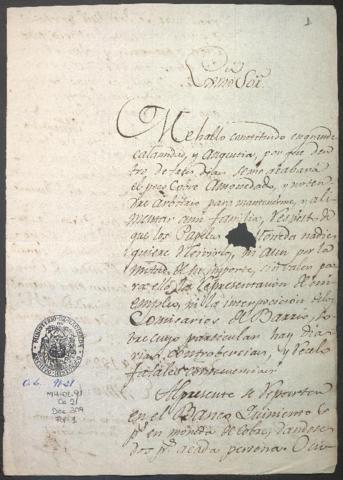 1
Exmo Sor.
Me hallo constituido en grande
calamidad, y angustia, por qe. den
tro de tres dias se me acabará
el poco Cobre amonedado, y no ten
dré arbitrio para mantenerme, y ali
mentar a mi familia, respecto de
qe. los Papeles Moneda nadie
quiere recivirlos, ni aun por la
mitad de su importe, sin valer pa
ra ello la representacion de mi
empleo, ni la interposicion de los
Comisarios de Barrio, so
bre cuyo particular hay dia
rias controbercias, y recelo
fatales consecuencias.
Al presente se reparten
en el Banco quinientos
ps. en moneda de cobre, dandose
dos ps. a cada persona.
MINISTERIO DE HACIENDA
O.L. 91-21
MH-OL 91
Ca 21
Doc 309
Fol 1